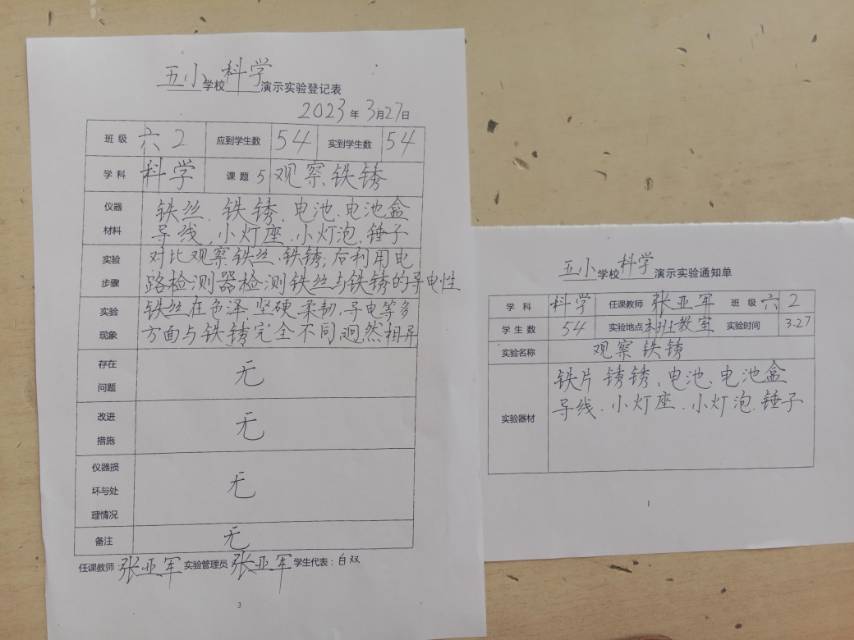 五小学校科学演示实验登记表
2023年3月27日
班级 六2 应到学生数 54 实到学生数 54
学科 科学 课题 5 观察铁锈
仪器材料 铁丝、铁锈、电池、电池盒
导线、小灯座、小灯泡、锤子
实验步骤 对比观察铁丝、铁锈,后利用电
路检测器检测铁丝与铁锈的导电性
实验现象 铁丝在色泽、坚硬、柔韧、导电等多
方面与铁锈完全不同迥然相异
存在问题 无
改进措施 无
仪器损坏与处理情况 无
备注 无
任课教师 张亚军 实验管理员 张亚军 学生代表:白双
3
五小学校科学演示实验通知单
学科 科学 任课教师 张亚军 班级 六2
学生数 54 实验地点 本班教室 实验时间 3.27
实验名称 观察铁锈
实验器材 铁片 锈锈、电池、电池盒
导线、小灯座、小灯泡、锤子
1